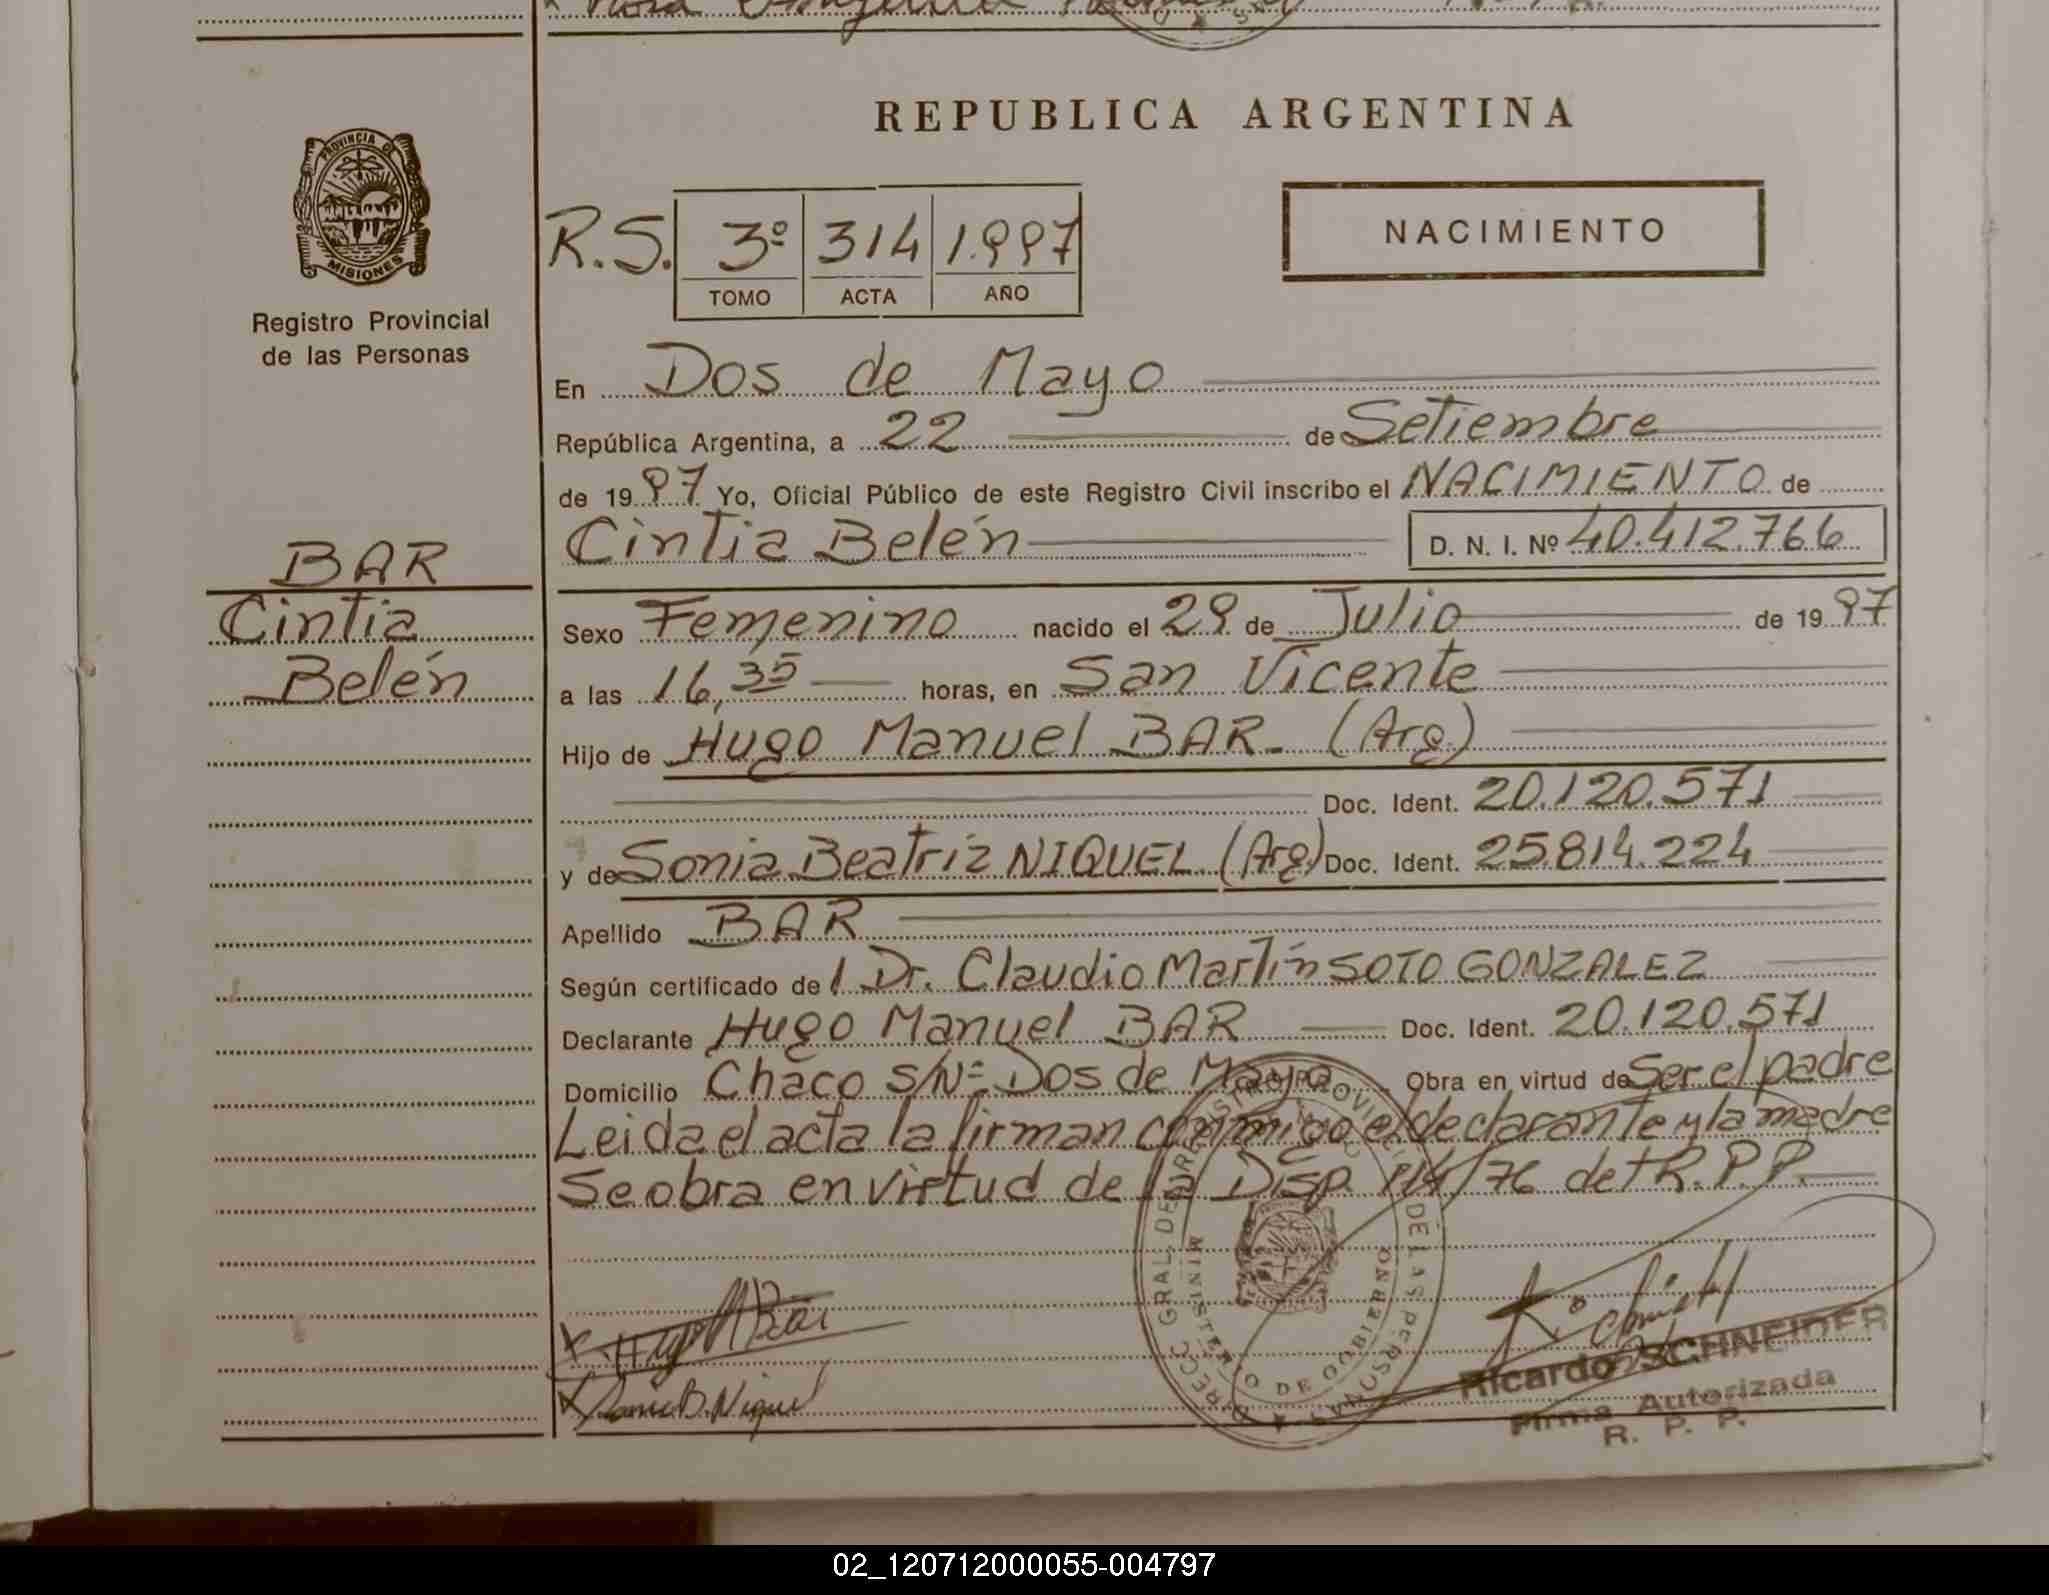 REPUBLICA ARGENTINA
PROVINCIA DE
MISIONES
Registro Provincial
de las Personas
R.S. 3º 314 1.997
TOMO ACTA AÑO
NACIMIENTO
En Dos de Mayo
República Argentina, a 22 de Setiembre
de 1997 Yo, Oficial Público de este Registro Civil inscribo el NACIMIENTO de
Cintia Belén D. N. I. Nº 40.412.766
BAR
Cintia
Belén
Sexo Femenino nacido el 29 de Julio de 1997
a las 16,35 horas, en San Vicente
Hijo de Hugo Manuel BAR (Arg)
Doc. Ident. 20.120.571
y de Sonia Beatriz NIQUEL (Arg) Doc. Ident. 25.814.224
Apellido BAR
Según certificado de l Dr. Claudio Martín SOTO GONZALEZ
Declarante Hugo Manuel BAR Doc. Ident. 20.120.571
Domicilio Chaco s/Nº Dos de Mayo Obra en virtud de Ser el padre
Leida el acta la firman conmigo el declarante y la madre
Se obra en virtud de la Disp. 114/76 del R.P.P.
MINISTERIO DE GOBIERNO
Ricardo SCHNEIDER
Firma Autorizada
R. P. P.
02_120712000055-004797